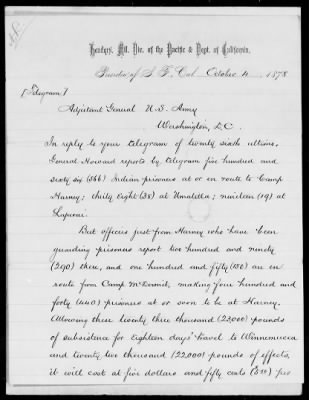 Headqrs. Mil. Div. of the Pacific & Dept. of California.
Presidio of S. F., Cal. October 4 1878
[Telegram]
Adjutant General U. S. Army
Washington, D.C.
In reply to your telegram of twenty sixth ultimo,
General Howard reports by telegram five hundred and
sixty six (566) Indian prisoners at or en route to Camp
Harney; thirty eight (38) at Umatilla; nineteen (19) at
Lapwai.
But officers just from Harney who have been
guarding prisoners report two hundred and ninety
(290) there, and one hundred and fifty (150) are en
route from Camp McDermit, making four hundred and
forty (440) prisoners at or soon to be at Harney.
Allowing thirty three thousand (33,000) pounds
of subsistence for eighteen days' travel to Winnemucca
and twenty two thousand (22,000) pounds of effects,
it will cost at five dollars and fifty cents (5.50) per